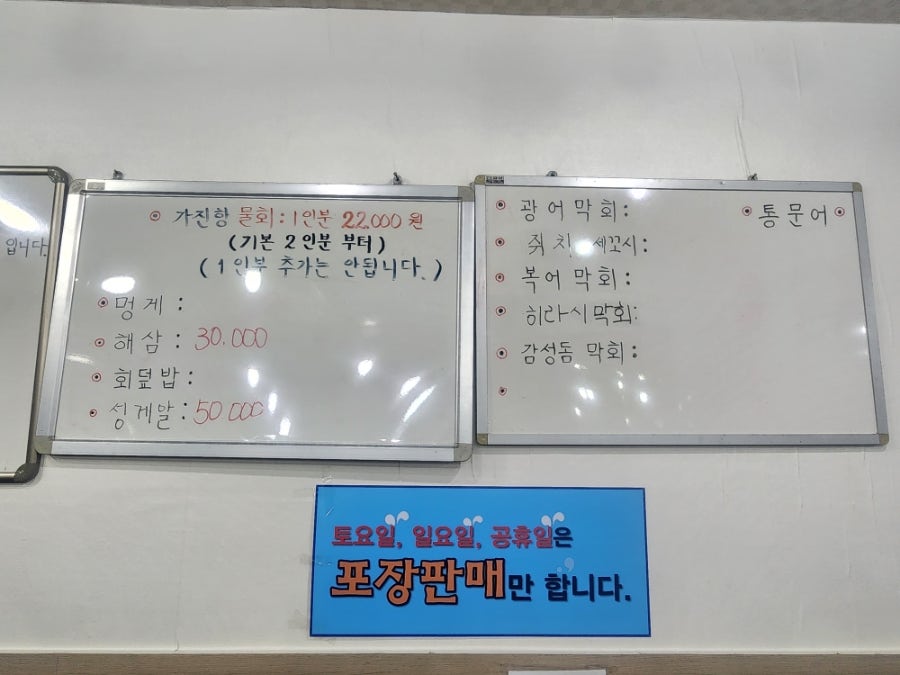 입니다.
가진항 물회: 1인분 22,000원
(기본 2인분 부터)
(1인분 추가는 안됩니다.)
멍게 :
해삼 : 30.000
회덮밥 :
성게알 : 50.000
광어막회 :
쥐치 세꼬시 :
복어막회 :
히라시막회:
감성돔 막회 :
통문어
토요일, 일요일, 공휴일은
포장판매만 합니다.